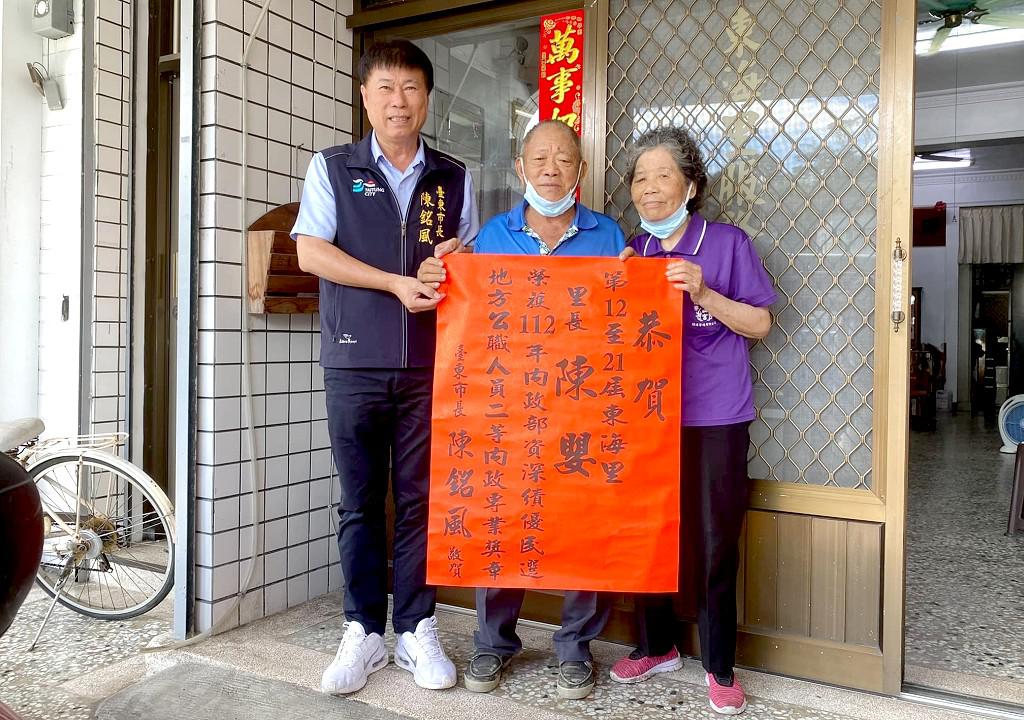 恭賀
第12至21屆東海里
里長 陳嬰
榮獲112年內政部資深績優民選
地方公職人員二等內政專業獎章
臺東市長 陳銘風 敬賀
臺東市長
陳銘風
TAITUNG
CITY
萬事